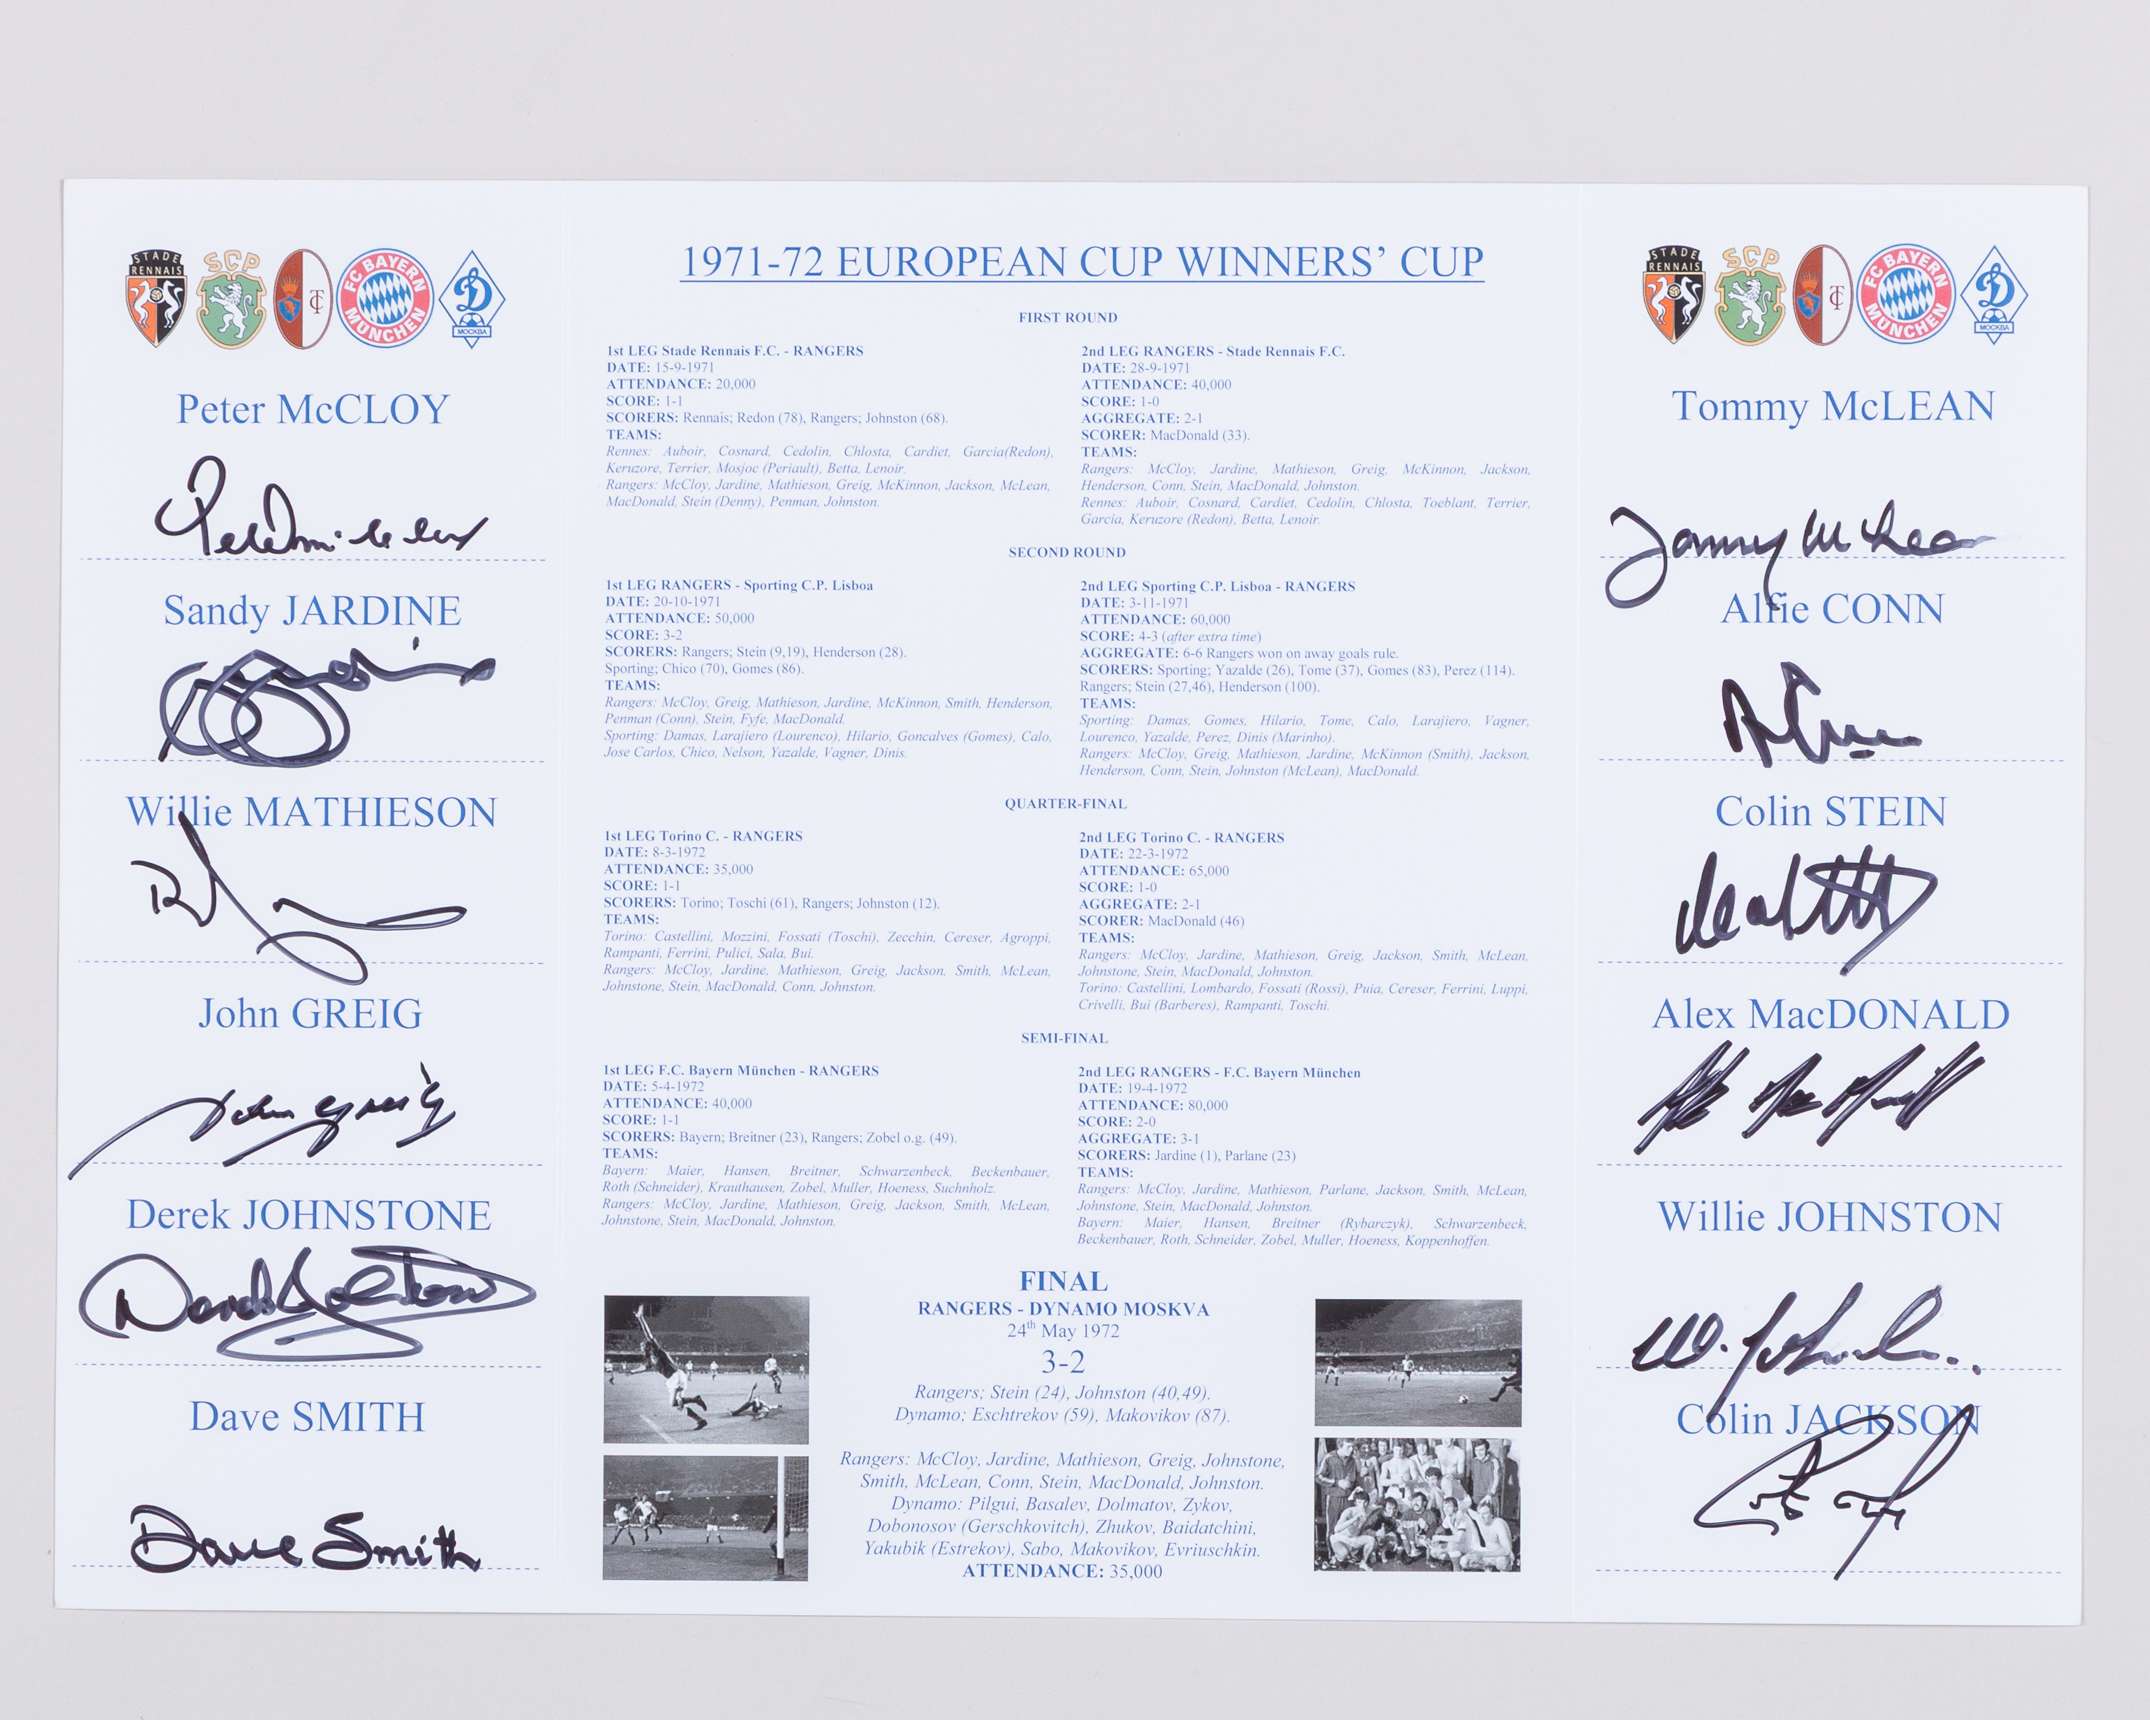 STADE
RENNAIS
SCP
TC
FC BAYERN
MÜNCHEN
МОСКВА
Peter McCLOY
Sandy JARDINE
Willie MATHIESON
John GREIG
John Greig
Derek JOHNSTONE
Derek Johnstone
Dave SMITH
Dave Smith
1971-72 EUROPEAN CUP WINNERS' CUP
FIRST ROUND
1st LEG Stade Rennais F.C. - RANGERS
DATE: 15-9-1971
ATTENDANCE: 20,000
SCORE: 1-1
SCORERS: Rennais; Redon (78), Rangers; Johnston (68).
TEAMS:
Rennes: Auboir, Cosnard, Cedolin, Chlosta, Cardiet, Garcia(Redon),
Keruzore, Terrier, Mosjoc (Periault), Betta, Lenoir.
Rangers: McCloy, Jardine, Mathieson, Greig, McKinnon, Jackson, McLean,
MacDonald, Stein (Denny), Penman, Johnston.
2nd LEG RANGERS - Stade Rennais F.C.
DATE: 28-9-1971
ATTENDANCE: 40,000
SCORE: 1-0
AGGREGATE: 2-1
SCORER: MacDonald (33).
TEAMS:
Rangers: McCloy, Jardine, Mathieson, Greig, McKinnon, Jackson,
Henderson, Conn, Stein, MacDonald, Johnston.
Rennes: Auboir, Cosnard, Cardiet, Cedolin, Chlosta, Toeblant, Terrier,
Garcia, Keruzore (Redon), Betta, Lenoir.
SECOND ROUND
1st LEG RANGERS - Sporting C.P. Lisboa
DATE: 20-10-1971
ATTENDANCE: 50,000
SCORE: 3-2
SCORERS: Rangers; Stein (9,19), Henderson (28).
Sporting; Chico (70), Gomes (86).
TEAMS:
Rangers: McCloy, Greig, Mathieson, Jardine, McKinnon, Smith, Henderson,
Penman (Conn), Stein, Fyfe, MacDonald.
Sporting: Damas, Larajiero (Lourenco), Hilario, Goncalves (Gomes), Calo,
Jose Carlos, Chico, Nelson, Yazalde, Vagner, Dinis.
2nd LEG Sporting C.P. Lisboa - RANGERS
DATE: 3-11-1971
ATTENDANCE: 60,000
SCORE: 4-3 (after extra time)
AGGREGATE: 6-6 Rangers won on away goals rule.
SCORERS: Sporting; Yazalde (26), Tome (37), Gomes (83), Perez (114).
Rangers; Stein (27,46), Henderson (100).
TEAMS:
Sporting: Damas, Gomes, Hilario, Tome, Calo, Larajiero, Vagner,
Lourenco, Yazalde, Perez, Dinis (Marinho).
Rangers: McCloy, Greig, Mathieson, Jardine, McKinnon (Smith), Jackson,
Henderson, Conn, Stein, Johnston (McLean), MacDonald.
QUARTER-FINAL
1st LEG Torino C. - RANGERS
DATE: 8-3-1972
ATTENDANCE: 35,000
SCORE: 1-1
SCORERS: Torino; Toschi (61), Rangers; Johnston (12).
TEAMS:
Torino: Castellini, Mozzini, Fossati (Toschi), Zecchin, Cereser, Agroppi,
Rampanti, Ferrini, Pulici, Sala, Bui.
Rangers: McCloy, Jardine, Mathieson, Greig, Jackson, Smith, McLean,
Johnstone, Stein, MacDonald, Conn, Johnston.
2nd LEG Torino C. - RANGERS
DATE: 22-3-1972
ATTENDANCE: 65,000
SCORE: 1-0
AGGREGATE: 2-1
SCORER: MacDonald (46)
TEAMS:
Rangers: McCloy, Jardine, Mathieson, Greig, Jackson, Smith, McLean,
Johnstone, Stein, MacDonald, Johnston.
Torino: Castellini, Lombardo, Fossati (Rossi), Puia, Cereser, Ferrini, Luppi,
Crivelli, Bui (Barberes), Rampanti, Toschi.
SEMI-FINAL
1st LEG F.C. Bayern München - RANGERS
DATE: 5-4-1972
ATTENDANCE: 40,000
SCORE: 1-1
SCORERS: Bayern; Breitner (23), Rangers; Zobel o.g. (49).
TEAMS:
Bayern: Maier, Hansen, Breitner, Schwarzenbeck, Beckenbauer,
Roth (Schneider), Krauthausen, Zobel, Muller, Hoeness, Suchnholz.
Rangers: McCloy, Jardine, Mathieson, Greig, Jackson, Smith, McLean,
Johnstone, Stein, MacDonald, Johnston.
2nd LEG RANGERS - F.C. Bayern München
DATE: 19-4-1972
ATTENDANCE: 80,000
SCORE: 2-0
AGGREGATE: 3-1
SCORERS: Jardine (1), Parlane (23)
TEAMS:
Rangers: McCloy, Jardine, Mathieson, Parlane, Jackson, Smith, McLean,
Johnstone, Stein, MacDonald, Johnston.
Bayern: Maier, Hansen, Breitner (Rybarczyk), Schwarzenbeck,
Beckenbauer, Roth, Schneider, Zobel, Muller, Hoeness, Koppenhoffen.
FINAL
RANGERS - DYNAMO MOSKVA
24th May 1972
3-2
Rangers; Stein (24), Johnston (40,49).
Dynamo; Eschtrekov (59), Makovikov (87).
Rangers: McCloy, Jardine, Mathieson, Greig, Johnstone,
Smith, McLean, Conn, Stein, MacDonald, Johnston.
Dynamo: Pilgui, Basalev, Dolmatov, Zykov,
Dobonosov (Gerschkovitch), Zhukov, Baidatchini,
Yakubik (Estrekov), Sabo, Makovikov, Evriuschkin.
ATTENDANCE: 35,000
STADE
RENNAIS
SCP
TC
FC BAYERN
MÜNCHEN
МОСКВА
Tommy McLEAN
Tommy McLean
Alfie CONN
Colin STEIN
Alex MacDONALD
Willie JOHNSTON
W. Johnston
Colin JACKSON